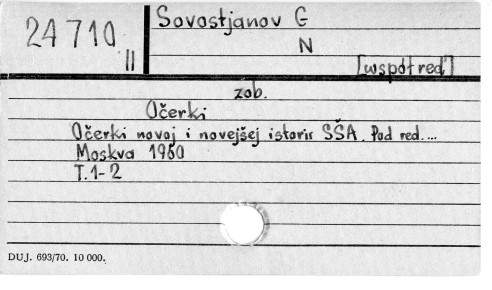 24 710
II
Sovostjanov G
N
[współred]
zob.
Očerki
Očerki novoj i novejšej istorii SŠA. Pod red. ...
Moskva 1960
T. 1-2
DUJ. 693/70. 10 000.